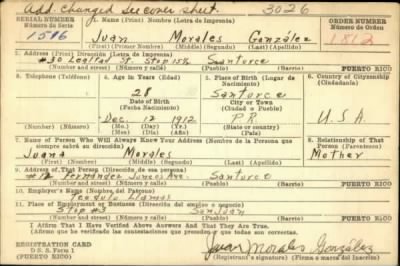 Add. changed see cover sheet. 3026
SERIAL NUMBER 1. Name (Print) Nombre (Letra de Imprenta) ORDER NUMBER
Número de Serie Número de Orden
1506 Juan Morales González 1812
(First) (Primer Nombre) (Middle) (Segundo) (Last) (Apellido)
2. Address (Print) Dirección (Letra de Imprenta)
#30 St. Stop 15½ Santurce
(Number and street) (Número y calle) PUERTO RICO
3. Telephone (Teléfono) 4. Age in Years (Edad) 5. Place of Birth (Lugar de Nacimiento) 6. Country of Citizenship (Ciudadanía)
28 Santurce
Date of Birth City or Town
(Fecha Nacimiento) (Ciudad o Pueblo)
Dec. 12 1912 P.R. U.S.A.
(Number) (Número) (Mo.) (Mes) (Day) (Día) (Yr.) (Año) (State or country) (País)
7. Name of Person Who Will Always Know Your Address (Nombre de la Persona que siempre sabrá su dirección) 8. Relationship of That Person (Parentesco)
Juana Morales Mother
(First) (Primer Nombre) (Middle) (Segundo) (Last) (Apellido)
9. Address of That Person (Dirección de esa persona)
#12 Fernández Juncos Ave. Santurce
(Number and street) (Número y calle) PUERTO RICO
10. Employer's Name (Nombre del Patrono)
Teodulo Llamas
11. Place of Employment or Business (Dirección del empleo o negocio)
Stop #3 San Juan
(Number and street) (Número y calle) PUERTO RICO
I Affirm That I Have Verified Above Answers And That They Are True.
(Afirmo que he verificado las contestaciones que preceden y que todas son correctas.)
REGISTRATION CARD Juan Morales González
D. S. S. Form 1 (Registrant's signature) (Firma o marca del registrado)
(PUERTO RICO)